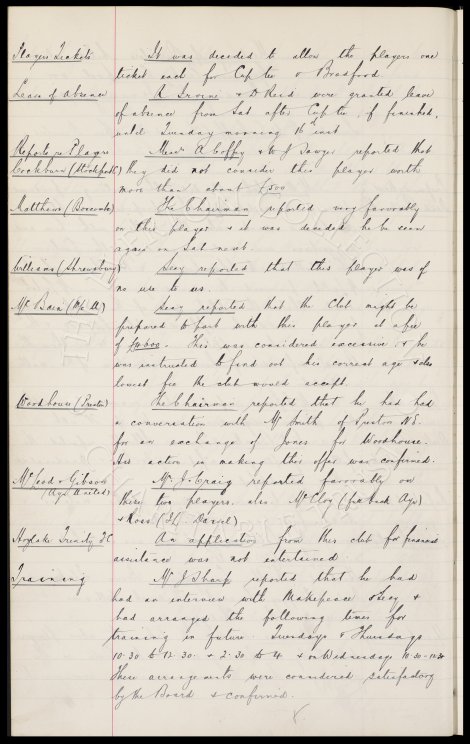 Players Tickets It was decided to allow the players one
ticket each for Cup tie v Bradford.
Leave of Absence R Irvine & D Reid were granted leave
of absence from Sat after Cup tie, if finished,
until Tuesday morning 16th inst
Reports re Players Messrs A Coffey & W J Sawyer reported that
Cockburn (Stockport C) they did not consider this player worth
more than about £500
Matthews (Boscombe) The Chairman reported very favorably
on this player & it was decided he be seen
again on Sat next.
Williams (Shrewsbury) Secy reported that this player was of
no use to us.
Mc Bain (M/c U) Secy reported that the Club might be
prepared to part with this player at a fee
of This was considered excessive & he
was instructed to find out his correct age & also
lowest fee the club would accept.
Woodhouse (Preston) The Chairman reported that he had had
a conversation with Mr Smith of Preston N.E.
for an exchange of Jones for Woodhouse.
His action in making this offer was confirmed.
McLeod & Gibson Mr J. Craig reported favorably on
(Ayr United) these two players. also McCloy (full back Ayr)
& Ross
Hoylake Trinity FC An application from this club for financial
assistance was not entertained.
Training Mr J Sharp reported that he had
had an interview with Makepeace & Secy &
had arranged the following times for
training in future. Tuesdays & Thursdays
10.30 to 12.30. & 2.30 to 4 & on Wednesdays 10.30 -
These arrangements were considered satisfactory
by the Board & confirmed.